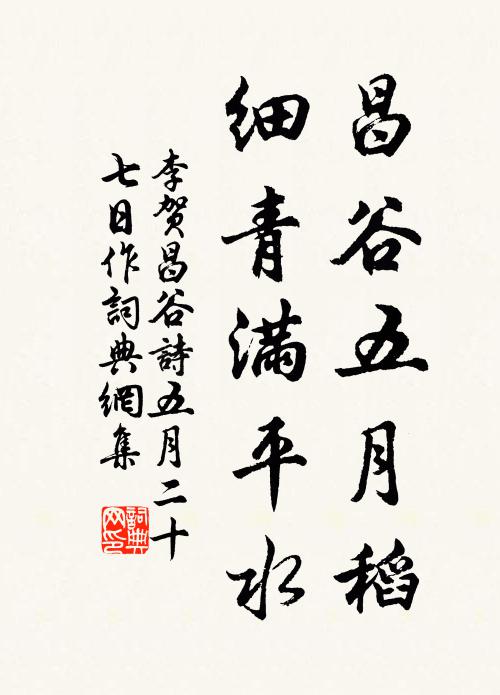 昌谷五月稻
细青满平水
李贺昌谷詩五月二十
七日作詞典網集
詞典
网印